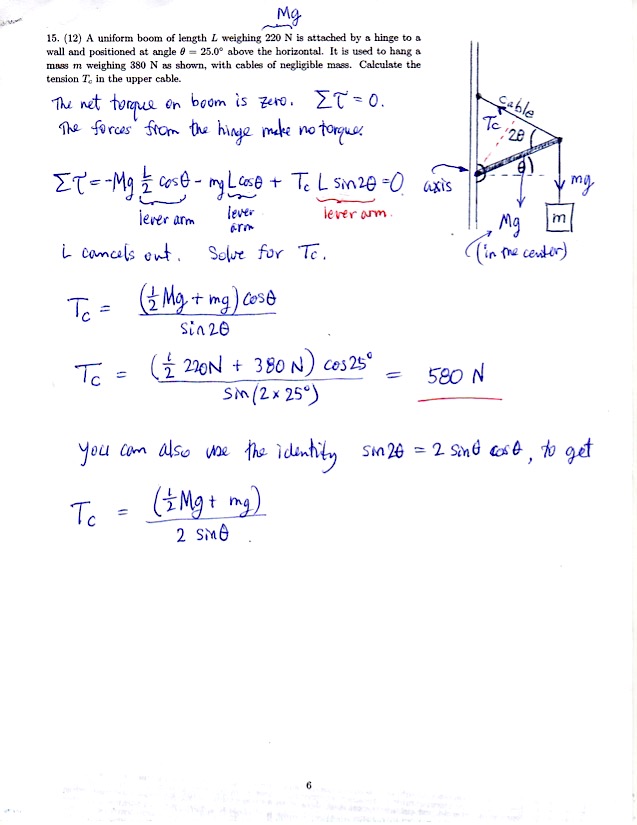 Mg
15. (12) A uniform boom of length L weighing 220 N is attached by a hinge to a
wall and positioned at angle θ = 25.0° above the horizontal. It is used to hang a
mass m weighing 380 N as shown, with cables of negligible mass. Calculate the
tension Tc in the upper cable.
The net torque on boom is zero. Στ = 0.
The forces from the hinge make no torque.
Στ = -Mg L/2 cosθ - mg L cosθ + Tc L sin2θ = 0
lever arm lever arm lever arm.
L cancels out. Solve for Tc.
Tc = (½ Mg + mg) cosθ / sin 2θ
Tc = (½ 220N + 380 N) cos25° / sin(2 x 25°) = 580 N
You can also use the identity sin2θ = 2 sinθ cosθ, to get
Tc = (½ Mg + mg) / 2 sinθ.
cable
Tc
2θ
θ
axis
mg
Mg
m
(in the center)
6